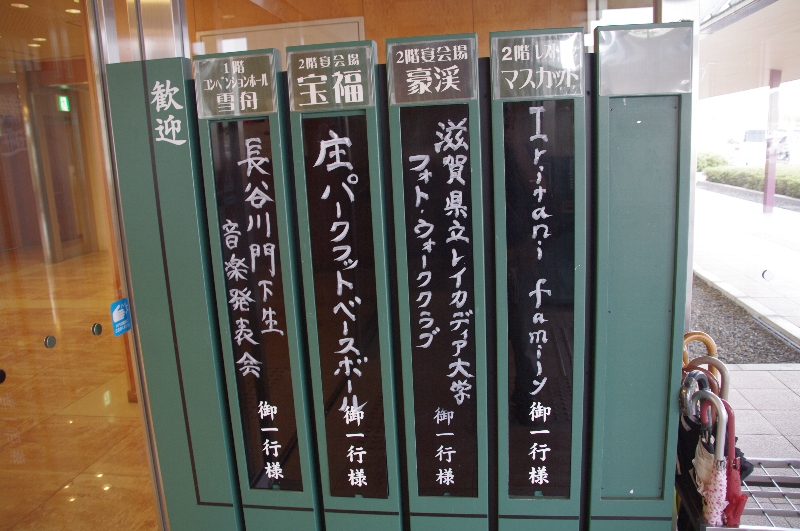 歓迎
1階
コンベンションホール
雪舟
長谷川門下生
音楽発表会
御一行様
2階宴会場
宝福
庄パークフットベースボール
御一行様
2階宴会場
豪渓
滋賀県立レイカディア大学
フォト・ウォーククラブ
御一行様
2階レストラン
マスカット
Iritani family
御一行様